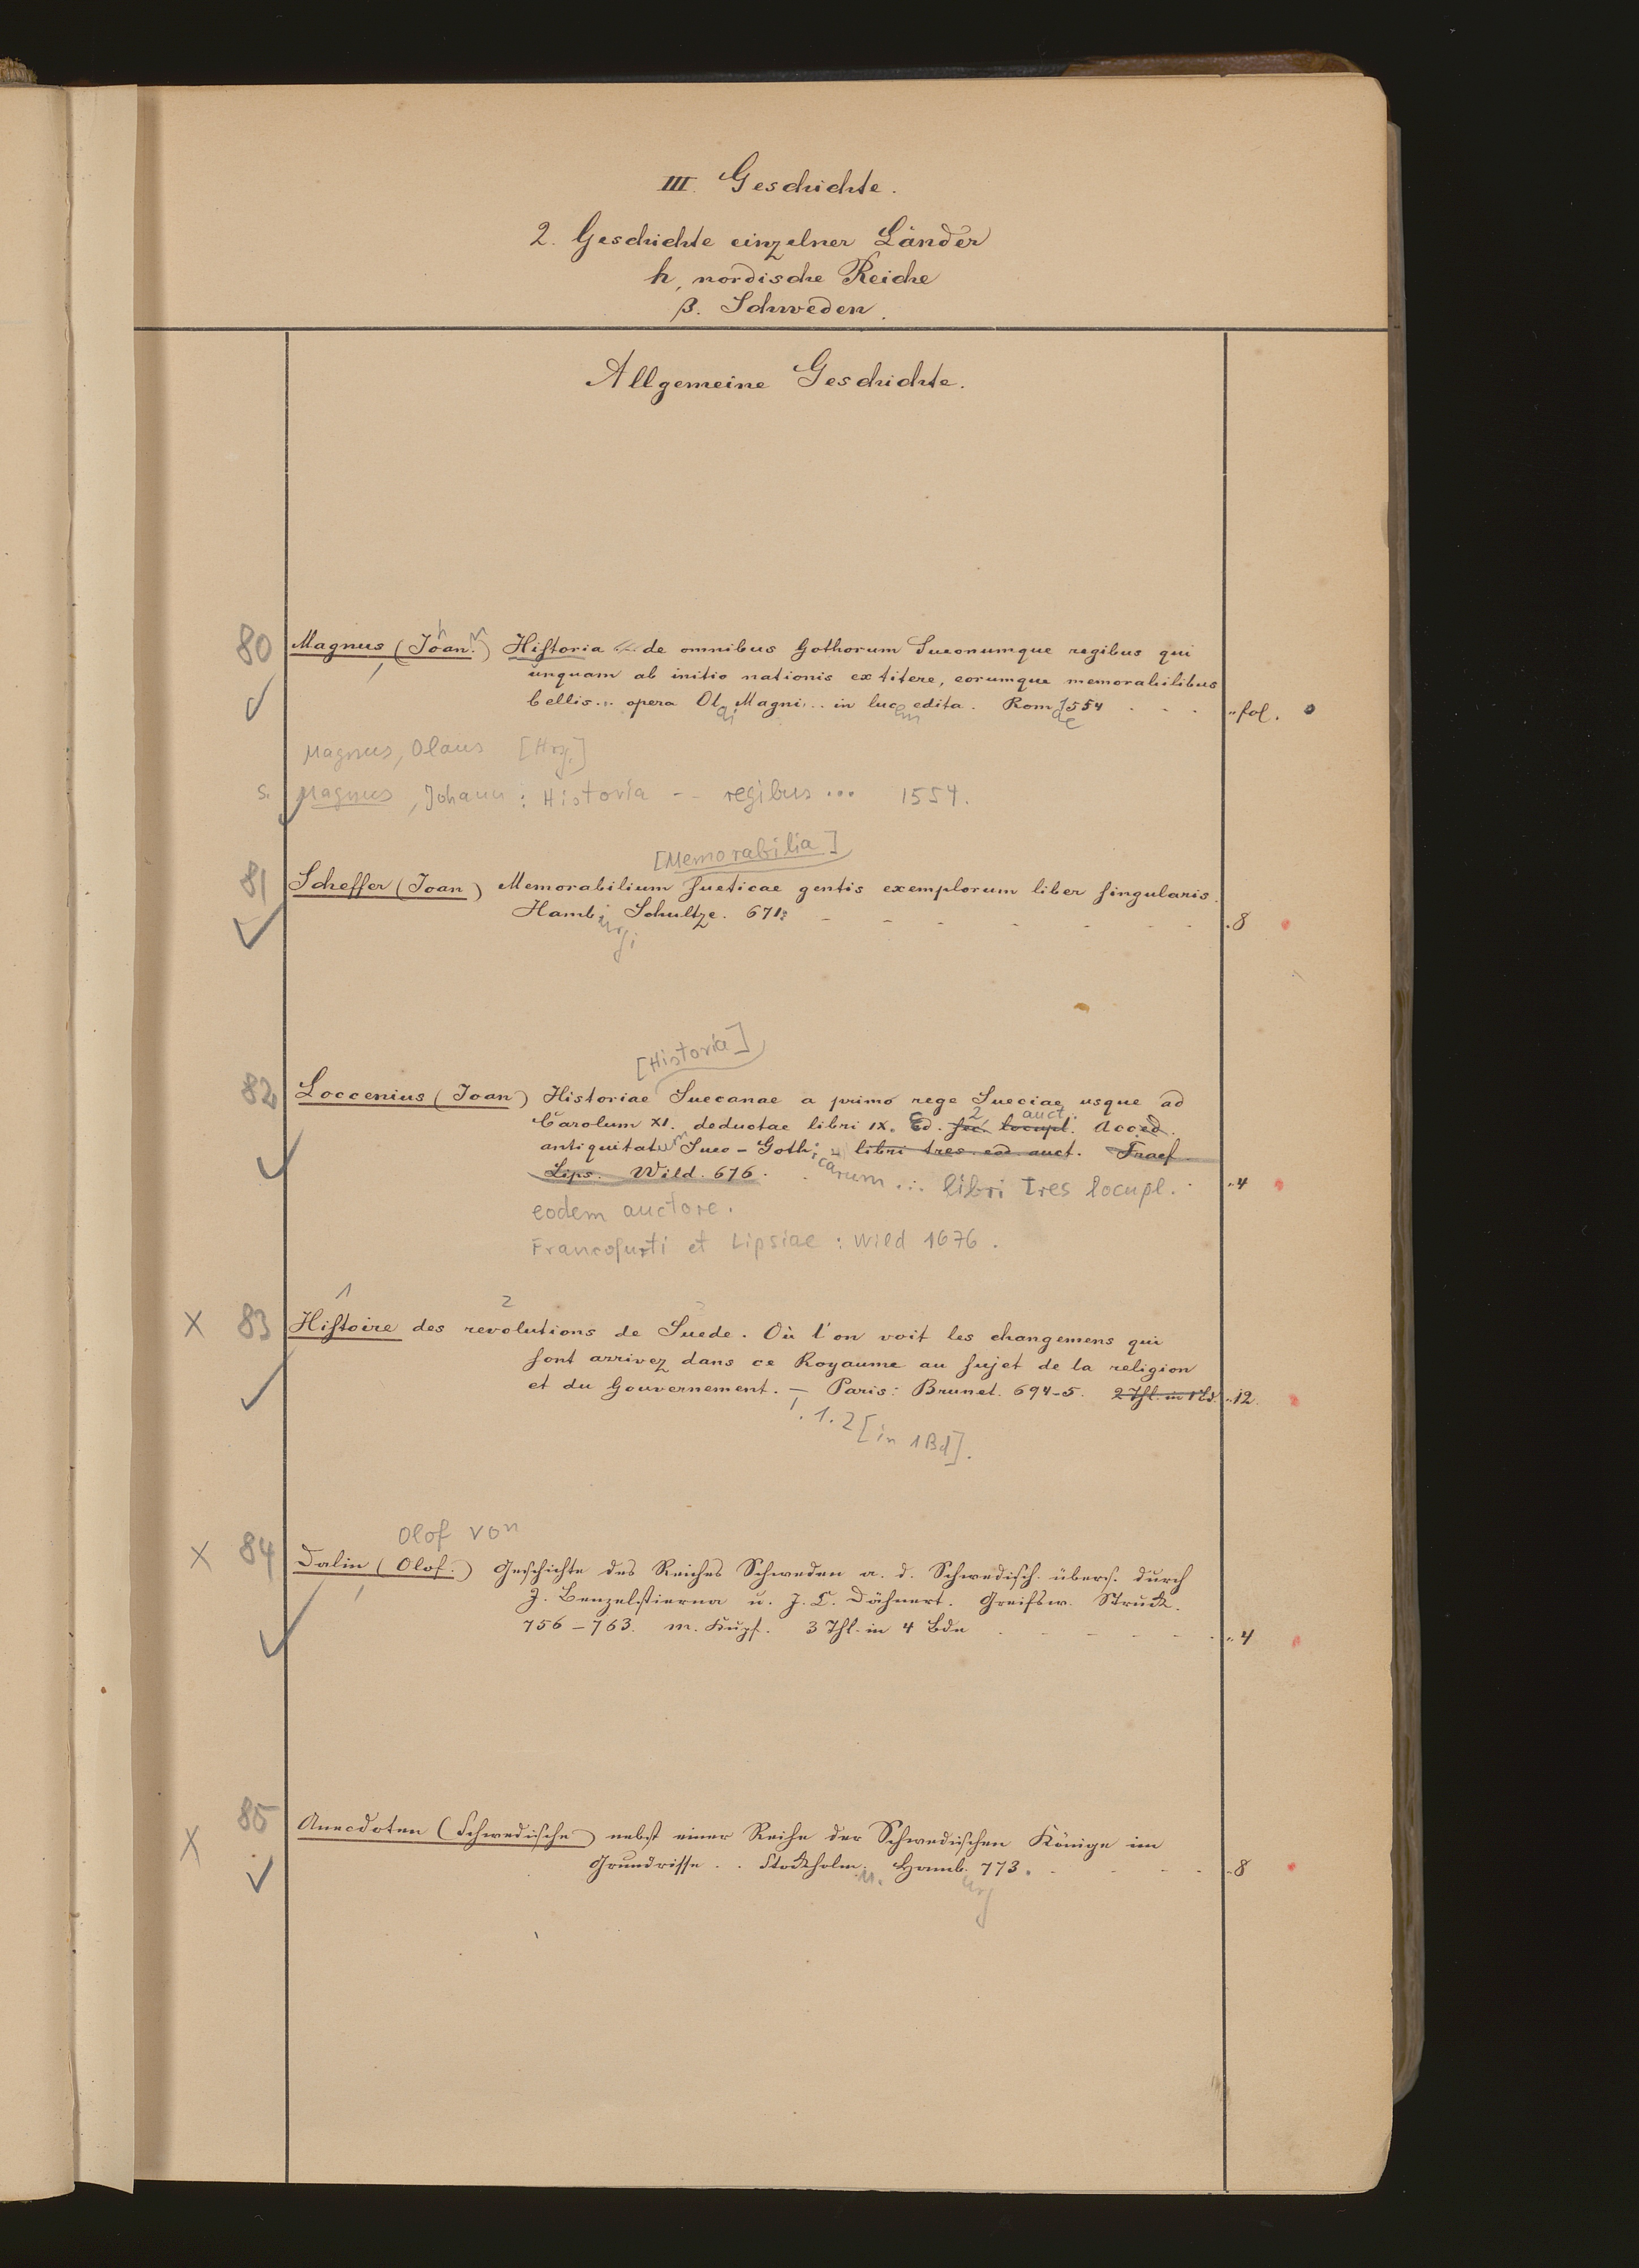 III. Geschichte.
2. Geschichte einzelner Länder
h, nordische Reiche
β. Schweden.
Allgemeine Geschichte.
80 Magnus (Joan.) Historia de omnibus Gothorum Sueonumque regibus qui
unquam ab initio nationis extitere, eorumque memorabilibus
bellis... opera Ol Magni... in luc edita. Rom 1554 . . . "fol.
ai em ae
Magnus, Olaus [Hrg.]
s. Magnus, Johann: Historia -- regibus ... 1554.
[Memorabilia]
81 Scheffer (Joan) Memorabilium sueticae gentis exemplorum liber singularis.
Hamb. Schultze. 671. - - - - - - "8
urgi
[Historia]
82 Loccenius (Joan) Historiae Suecanae a primo rege Sueciae usque ad
2 auct.
Carolum XI. deductae libri IX. Ed. sec. locupl. Acced.
antiquitatum Sueo-Goth libri tres eod auct. Fraef
Lips. Wild. 676. icarum ... libri tres locupl. "4
eodem auctore.
Francofurti et Lipsiae: Wild 1676.
1 2
X 83 Histoire des revolutions de Suede. Où l'on voit les changemens qui
sont arrivez dans ce Royaume au sujet de la religion
et du Gouvernement. — Paris: Brunet. 694-5. 2 Thl. in 1 Bd. "12.
T. 1.2 [in 1Bd].
Olof von
X 84 Dalin (Olof.) Geschichte des Reiches Schweden a. d. Schwedisch. übers. durch
J. Benzelstierna u. J. C. Dähnert. Greifsw. Struck.
756-763. m. Kupf. 3 Thl. in 4 Bdn . - - - - "4
X 85 Anecdoten (Schwedische) nebst einer Reihe der Schwedischen Könige im
Grundrisse . . Stockholm. u. Hamb. 773. . - - - "8
urg